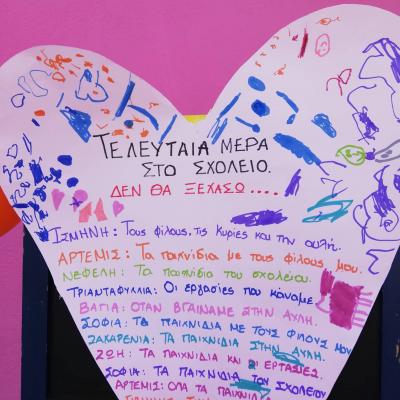 ΤΕΛΕΥΤΑΙΑ ΜΕΡΑ
ΣΤΟ ΣΧΟΛΕΙΟ.
ΔΕΝ ΘΑ ΞΕΧΑΣΩ....
ΙΣΜΗΝΗ: Τους φίλους, τις κυρίες και την αυλή.
ΑΡΤΕΜΙΣ: Τα παιχνίδια με τους φίλους μου.
ΝΕΦΕΛΗ: Τα παιχνίδια του σχολείου.
ΤΡΙΑΝΤΑΦΥΛΛΙΑ: Οι εργασίες που κάναμε
ΒΑΓΙΑ: ΟΤΑΝ ΒΓΑΙΝΑΜΕ ΣΤΗΝ ΑΥΛΗ.
ΣΟΦΙΑ: ΤΑ ΠΑΙΧΝΙΔΙΑ ΜΕ ΤΟΥΣ ΦΙΛΟΥΣ ΜΟΥ
ΖΑΧΑΡΕΝΙΑ: ΤΑ ΠΑΙΧΝΙΔΙΑ ΣΤΗΝ ΑΥΛΗ.
ΖΩΗ: ΤΑ ΠΑΙΧΝΙΔΙΑ ΚΙ ΟΙ ΕΡΓΑΣΙΕΣ.
ΣΟΦΙΑ: ΤΑ ΠΑΙΧΝΙΔΙΑ ΤΟΥ ΣΧΟΛΕΙΟΥ
ΑΡΤΕΜΙΣ: ΟΛΑ ΤΑ